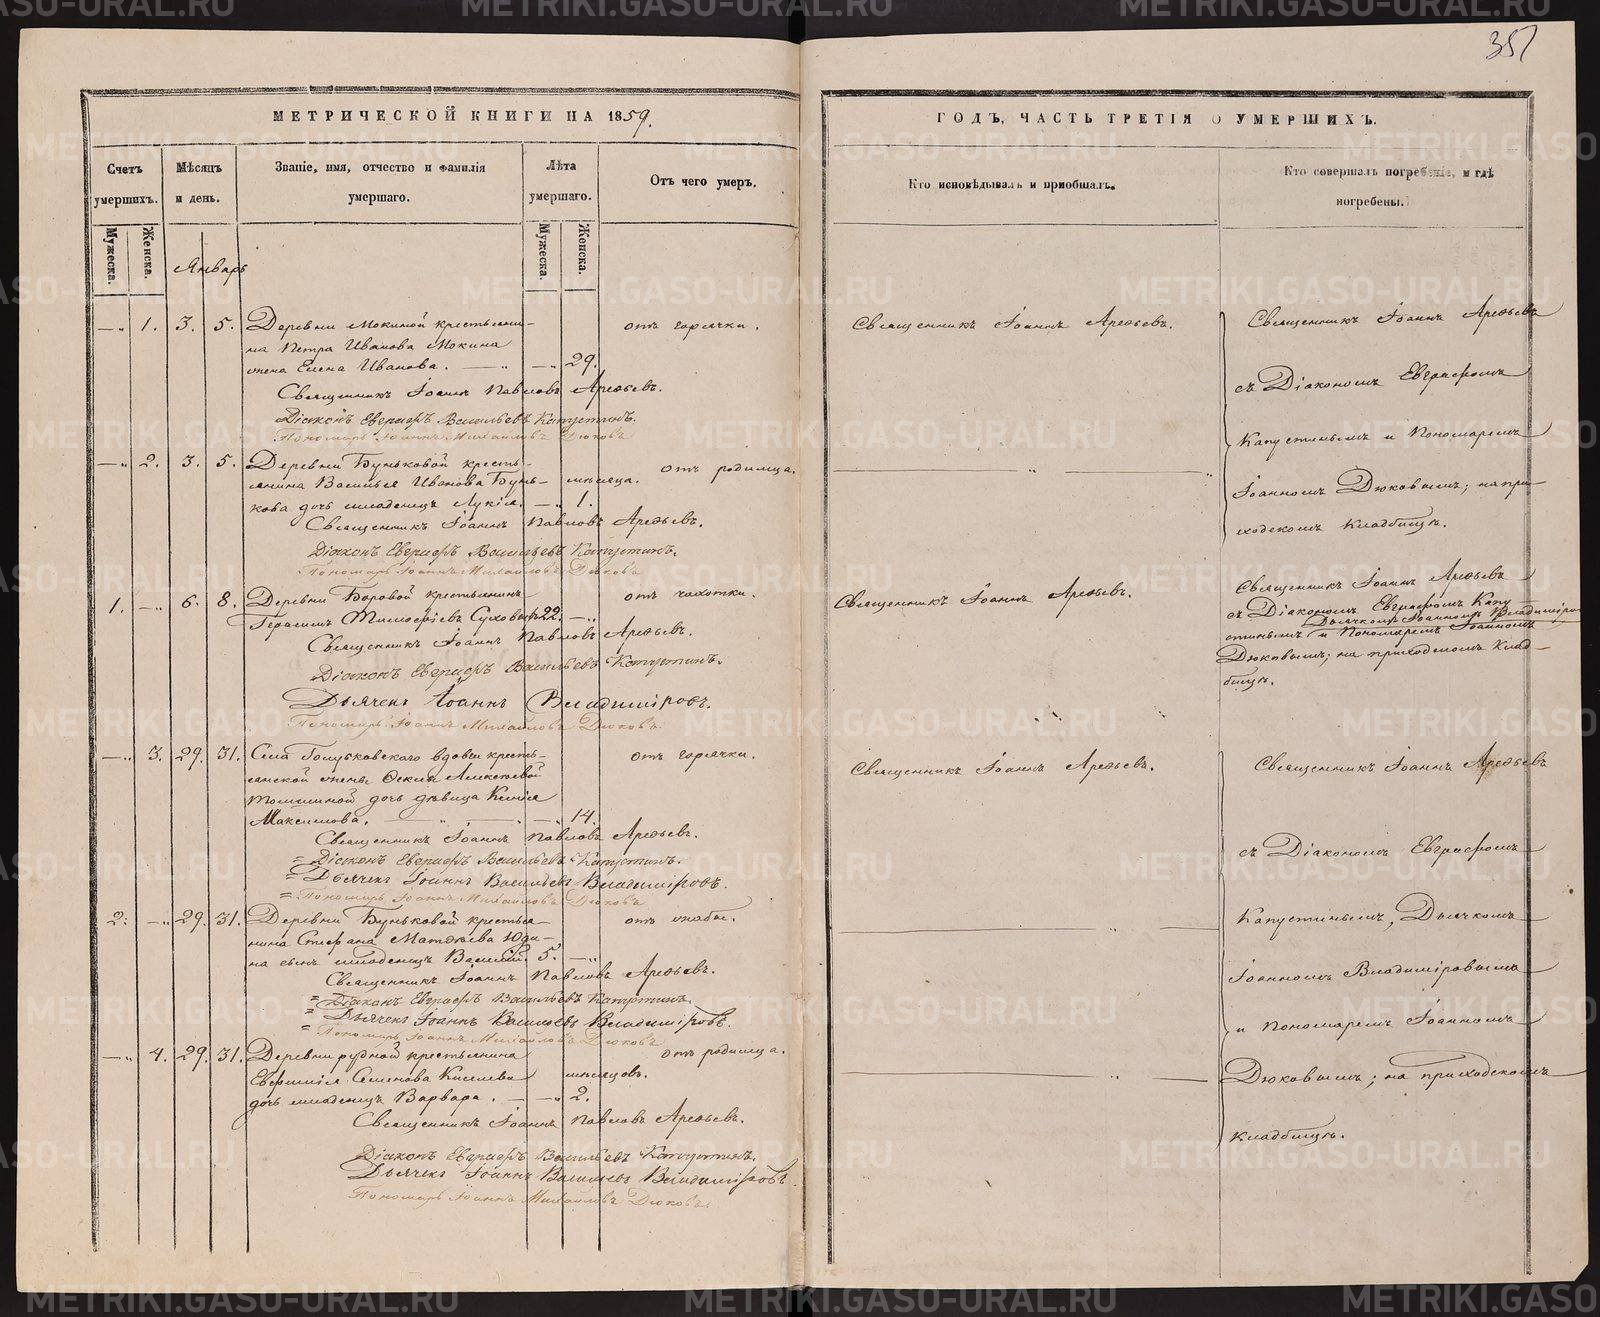 351
МЕТРИЧЕСКОЙ КНИГИ НА 1859.
Счетъ умершихъ.
Мужеска.
Женска.
Мѣсяцъ и день.
Званіе, имя, отчество и фамилія умершаго.
Лѣта умершаго.
Мужеска.
Женска.
Отъ чего умеръ.
Январь
—„ 1. 3. 5. Деревни Мокиной крестьяни-
на Петра Иванова Мокина
жена Елена Иванова. — „ — „ 29.
отъ горячки.
Священникъ Іоаннъ Павловъ Арефьевъ.
Діаконъ Евграфъ Васильевъ Капустинъ.
Пономарь Іоаннъ Михайловъ Дюковъ
—„ 2. 3. 5. Деревни Буньковой кресть-
янина Василья Иванова Бунь- мѣсяца.
кова дочь младенецъ Лукія. —„ 1.
отъ родимца.
Священникъ Іоаннъ Павловъ Арефьевъ.
Діаконъ Евграфъ Васильевъ Капустинъ.
Пономарь Іоаннъ Михайловъ Дюковъ
1. —„ 6. 8. Деревни Боровой крестьянинъ
Герасимъ Тимофѣевъ 22. —„
отъ чахотки.
Священникъ Іоаннъ Павловъ Арефьевъ.
Діаконъ Евграфъ Васильевъ Капустинъ.
Дьячекъ Іоаннъ Владиміровъ.
Пономарь Іоаннъ Михайловъ Дюковъ
—„ 3. 29. 31. Села вдовы кресть-
янской жены Алексѣевой
дочь дѣвица
Максимова. — „ — „ — „ 14.
отъ горячки.
Священникъ Іоаннъ Павловъ Арефьевъ.
= Діаконъ Евграфъ Васильевъ Капустинъ.
= Дьячекъ Іоаннъ Васильевъ Владиміровъ.
= Пономарь Іоаннъ Михайловъ Дюковъ
2. —„ 29. 31. Деревни Буньковой крестья-
нина Стефана Матвѣева Юди-
на сынъ младенецъ Василій. 5. —„
отъ жабы.
Священникъ Іоаннъ Павловъ Арефьевъ.
= Діаконъ Евграфъ Васильевъ Капустинъ.
= Дьячекъ Іоаннъ Васильевъ Владиміровъ.
= Пономарь Іоаннъ Михайловъ Дюковъ
—„ 4. 29. 31. Деревни рудной крестьянина
Евфимія Семенова Киселева мѣсяцовъ.
дочь младенецъ Варвара. — —„ 2.
отъ родимца.
Священникъ Іоаннъ Павловъ Арефьевъ.
Діаконъ Евграфъ Васильевъ Капустинъ.
Дьячекъ Іоаннъ Васильевъ Владиміровъ.
Пономарь Іоаннъ Михайловъ Дюковъ.
ГОДЪ, ЧАСТЬ ТРЕТІЯ О УМЕРШИХЪ.
Кто исповѣдывалъ и пріобщалъ.
Кто совершалъ погребеніе, и гдѣ
погребены.
Священникъ Іоаннъ Арефьевъ.
Священникъ Іоаннъ Арефьевъ
съ Діакономъ Евграфомъ
Капустинымъ и Пономаремъ
Іоанномъ Дюковымъ; на при-
ходскомъ кладбищѣ.
Священникъ Іоаннъ Арефьевъ.
Священникъ Іоаннъ Арефьевъ
съ Діакономъ Евграфомъ Капу-
Дьячкомъ Іоанномъ Владиміров
стинымъ и Пономаремъ Іоанномъ
Дюковымъ; на приходскомъ клад-
бищѣ.
Священникъ Іоаннъ Арефьевъ.
Священникъ Іоаннъ Арефьевъ
съ Діакономъ Евграфомъ
Капустинымъ, Дьячкомъ
Іоанномъ Владиміровымъ
и Пономаремъ Іоанномъ
Дюковымъ; на приходскомъ
кладбищѣ.
METRIKI.GASO-URAL.RU